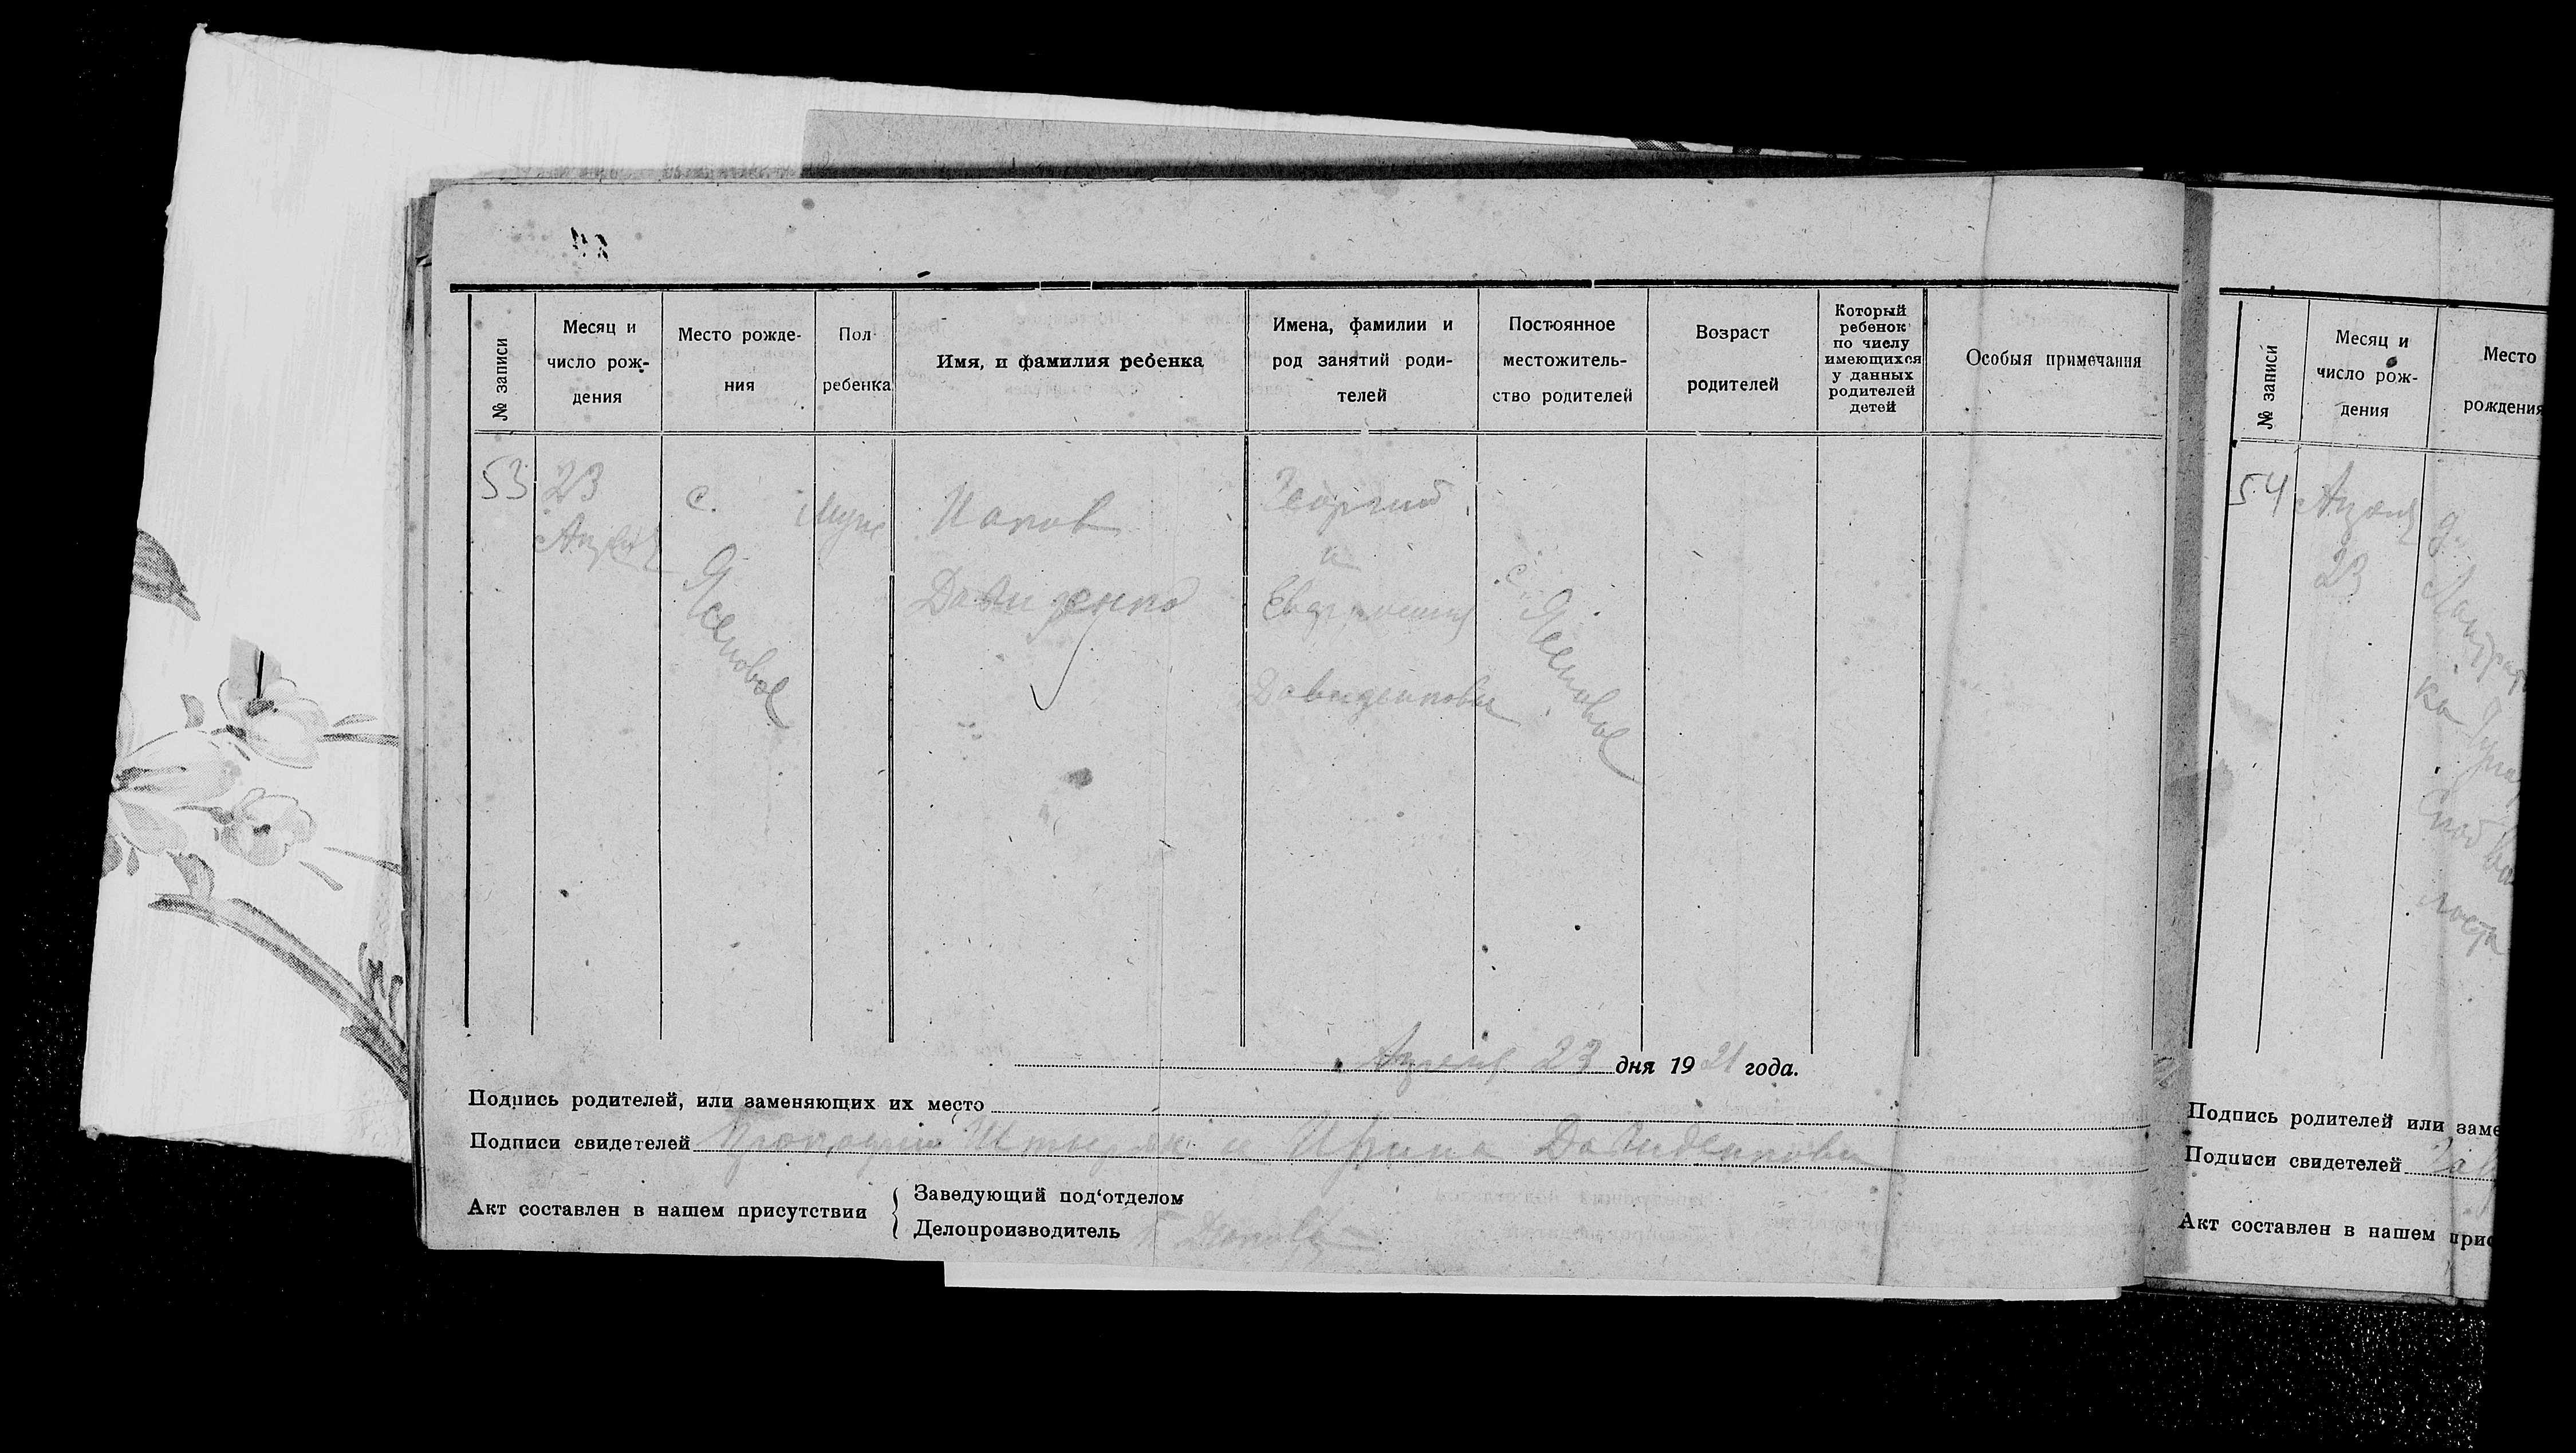 № записи
Месяц и
число рож-
дения
Место рожде-
ния
Пол
ребенка
Имя, и фамилия ребенка
Имена, фамилии и
род занятий роди-
телей
Постоянное
местожитель-
ство родителей
Возраст
родителей
Который
ребенок
по числу
имеющихся
у данных
родителей
детей
Особыя примечания
53
23
Апреля
с.
Ясеновое
Муж
Иаков
Давиденко
Георгий
и
Евдокия
Давиденковы
с.
Ясеновое
Апреля 23 дня 1921 года.
Подпись родителей, или заменяющих их место
Подписи свидетелей и Ирина Давиденкова
Акт составлен в нашем присутствии
Заведующий под‘отделом
Делопроизводитель
№ записи
Месяц и
число рож-
дения
Место
рождения
54
Апреля
23
Подпись родителей или заме
Подписи свидетелей
Акт составлен в нашем прис